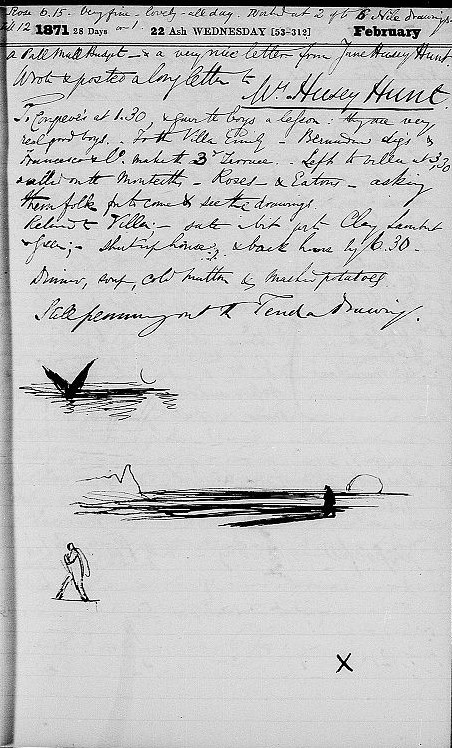 Rose 6.15. Very fine - lovely - all day. Worked at 2 of the 5 Nile drawings.
1871 28 Days 22 Ash WEDNESDAY [53-312] February
a Pall Mall Budget - & a very nice letter from Jane Husey Hunt.
Wrote & posted a long letter to
Mrs. Husey Hunt.
To Congreve's at 1.30, & gave the boys a lesson: they are very
real good boys. To the Villa Emily - Bernardin digs &
Francesco & Co. make the 3rd Terrace. Left the villa at 3.30
& called on the Monteiths - Roses - & Eatons - asking
them folk for to come & see the drawings.
Return to Villa: - sate
shut up house, & back home by 6.30 -
Dinner, soup, cold mutton & mashed potatoes.
Still penning out the Tenda Drawing.
X